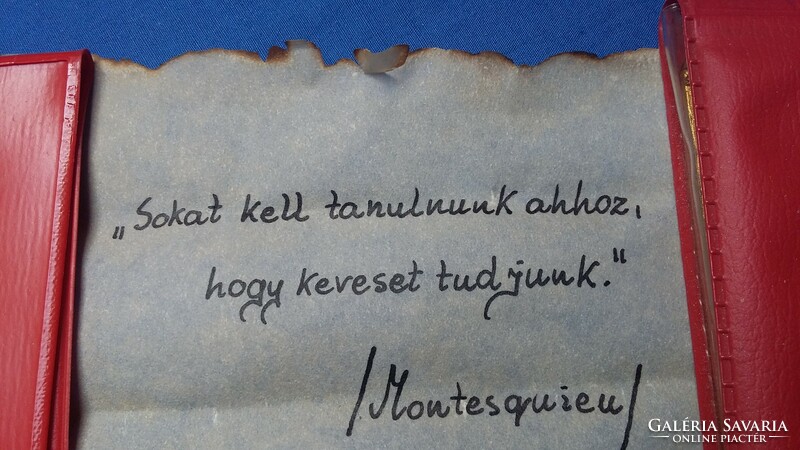 „Sokat kell tanulnunk ahhoz,
hogy keveset tudjunk."
/Montesquieu/
GALÉRIA SAVARIA
ONLINE PIACTÉR